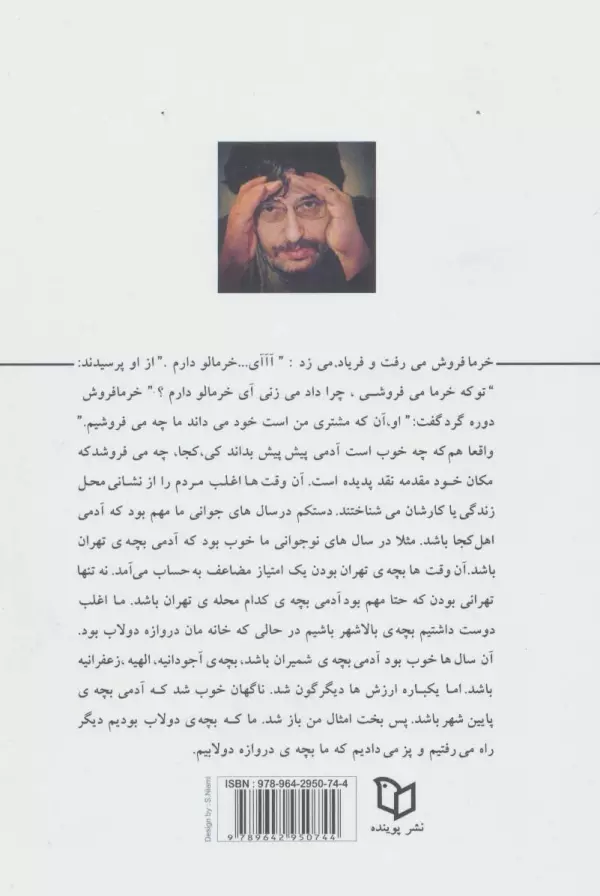 خرما فروش می رفت و فریاد می زد : " آآآی...خرمالو دارم ." از او پرسیدند:
"توکه خرما می فروشی ، چرا داد می زنی آی خرمالو دارم ؟ " خرمافروش
دوره گرد گفت:" او،آن که مشتری من است خود می داند ما چه می فروشیم."
واقعا هم که چه خوب است آدمی پیش پیش بداند کی،کجا، چه می فروشدکه
مکان خود مقدمه نقد پدیده است. آن وقت ها اغلب مردم را از نشانی محل
زندگی یا کارشان می شناختند. دستکم درسال های جوانی ما مهم بود که آدمی
اهل کجا باشد. مثلا در سال های نوجوانی ما خوب بود که آدمی بچه ی تهران
باشد.آن وقت ها بچه ی تهران بودن یک امتیاز مضاعف به حساب می آمد. نه تنها
تهرانی بودن که حتا مهم بود آدمی بچه ی کدام محله ی تهران باشد. ما اغلب
دوست داشتیم بچه ی بالاشهر باشیم در حالی که خانه مان دروازه دولاب بود.
آن سال ها خوب بود آدمی بچه ی شمیران باشد، بچه ی آجودانیه، الهیه ،زعفرانیه
باشد. اما یکباره ارزش ها دیگرگون شد. ناگهان خوب شد که آدمی بچه ی
پایین شهر باشد. پس بخت امثال من باز شد. ما که بچه ی دولاب بودیم دیگر
راه می رفتیم و پز می دادیم که ما بچه ی دروازه دولابیم.
ISBN : 978-964-2950-74-4
9 789642 950744
Design by : S.Niiami
نشر پوینده